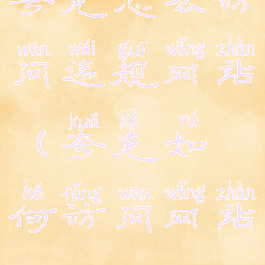 wèn wéi guī wǎng zhàn
问违规网站
kuā kè rú
（夸克如
hé fǎng wèn wǎng zhàn
何访问网站